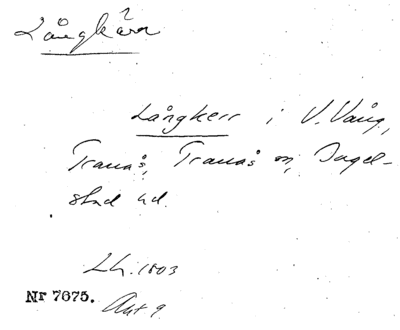 Långkärr
Långkerr i V. Vång,
Tranås, Tranås sn, Ingel-
stad hd.
Lh. 1803
Nr 7675. Akt 9